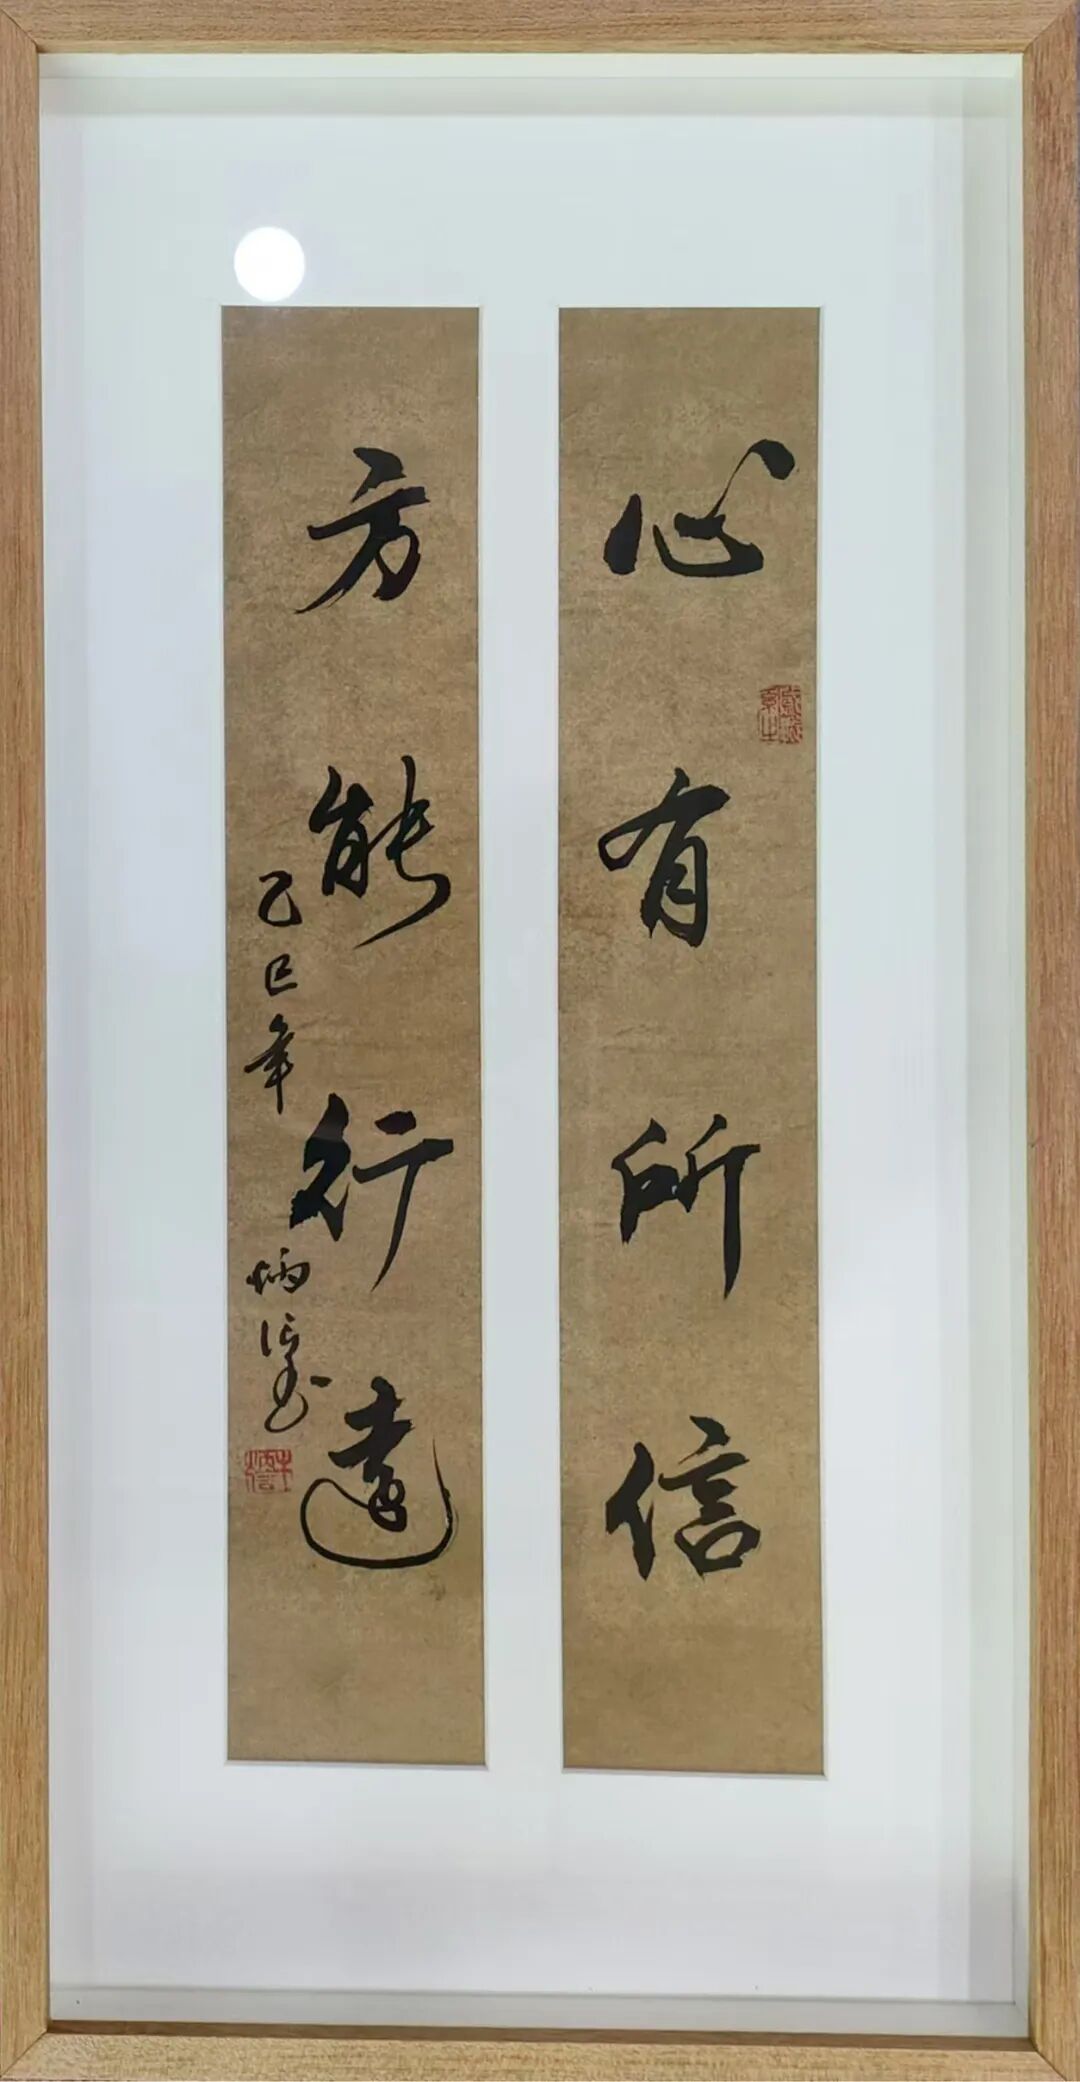 心有所信
方能行远
乙巳年
炳信书